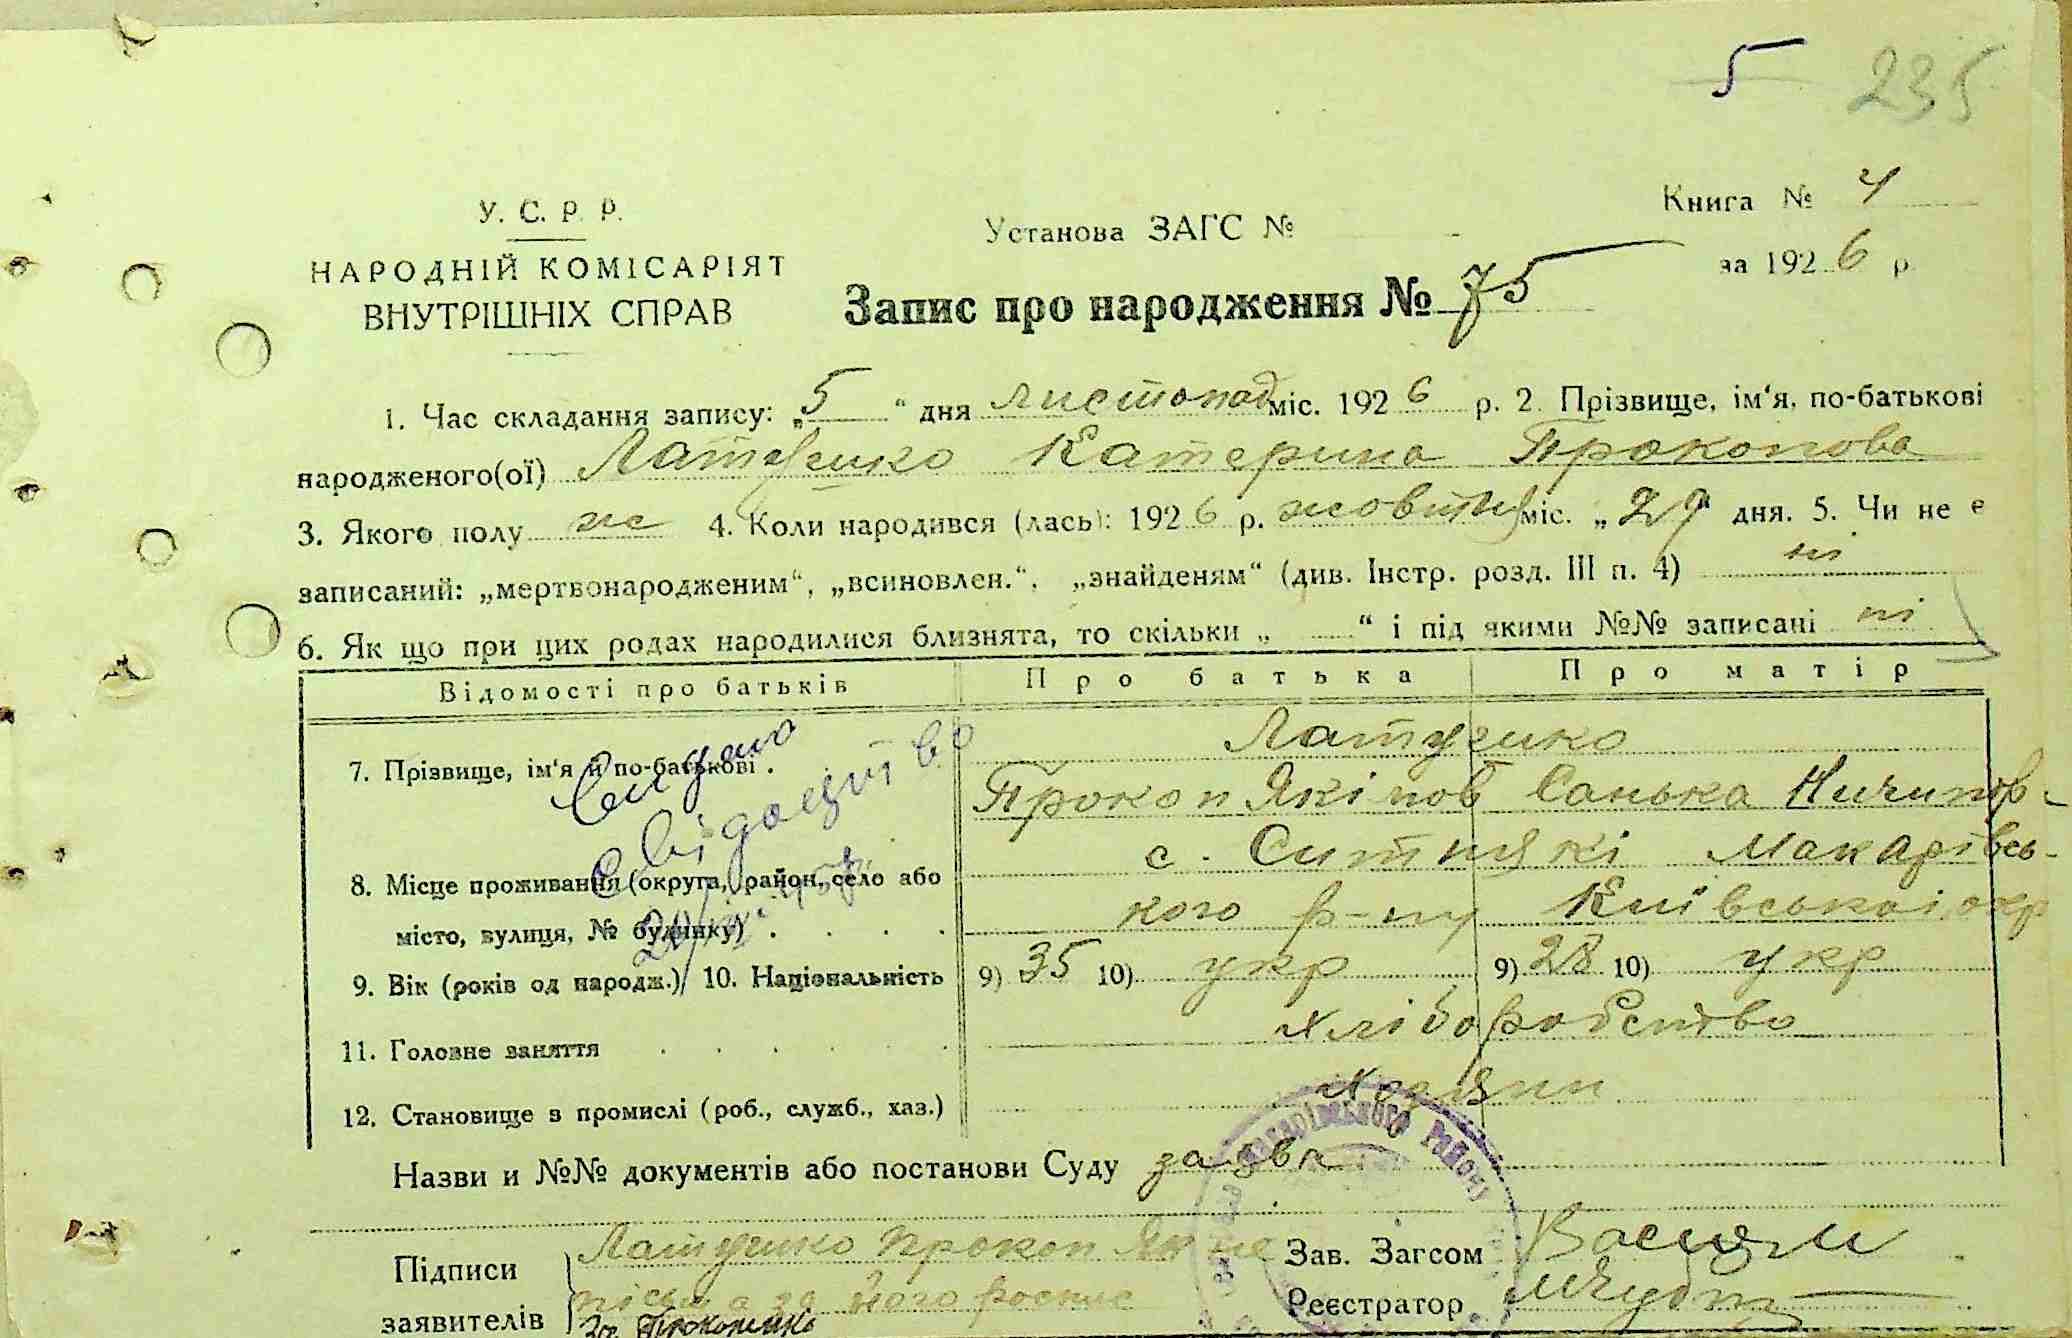 5 235
Книга № 4
У. С. Р. Р.
Установа ЗАГС №
за 1926 р.
НАРОДНІЙ КОМІСАРІЯТ
ВНУТРІШНІХ СПРАВ
Запис про народження № 75
1. Час складання запису: „5“ дня листопад міс. 1926 р. 2. Прізвище, ім‘я, по-батькові
народженого(ої) Латушко Катерина Прокопова
3. Якого полу жс 4. Коли народився (лась): 1926 р. жовтня міс. „29“ дня. 5. Чи не є
записаний: „мертвонародженим“, „всиновлен.“, „знайденям“ (див. Інстр. розд. III п. 4) ні
6. Як що при цих родах народилися близнята, то скільки „ “ і під якими №№ записані ні
Відомості про батьків Про батька Про матір
7. Прізвище, ім‘я й по-батькові . Латушко
Прокоп Якімов Санька Ничипор-
8. Місце проживання (округа, район, село або с. Ситнякі Макарівсь-
місто, вулиця, № будинку) . . . . кого р-ну Київської окр
9. Вік (років од народж.) 10. Національність 9) 35 10) укр 9) 28 10) укр
11. Головне заняття . . . . . Хліборобство
12. Становище в промислі (роб., служб., хаз.) Хазяин
Видано
свідоцтво
Назви и №№ документів або постанови Суду заява
МАКАРІВСЬКОГО РАЙОНУ
Підписи Латушко Прокоп Зав. Загсом
заявителів за його роспис Реєстратор
За Прокопенко